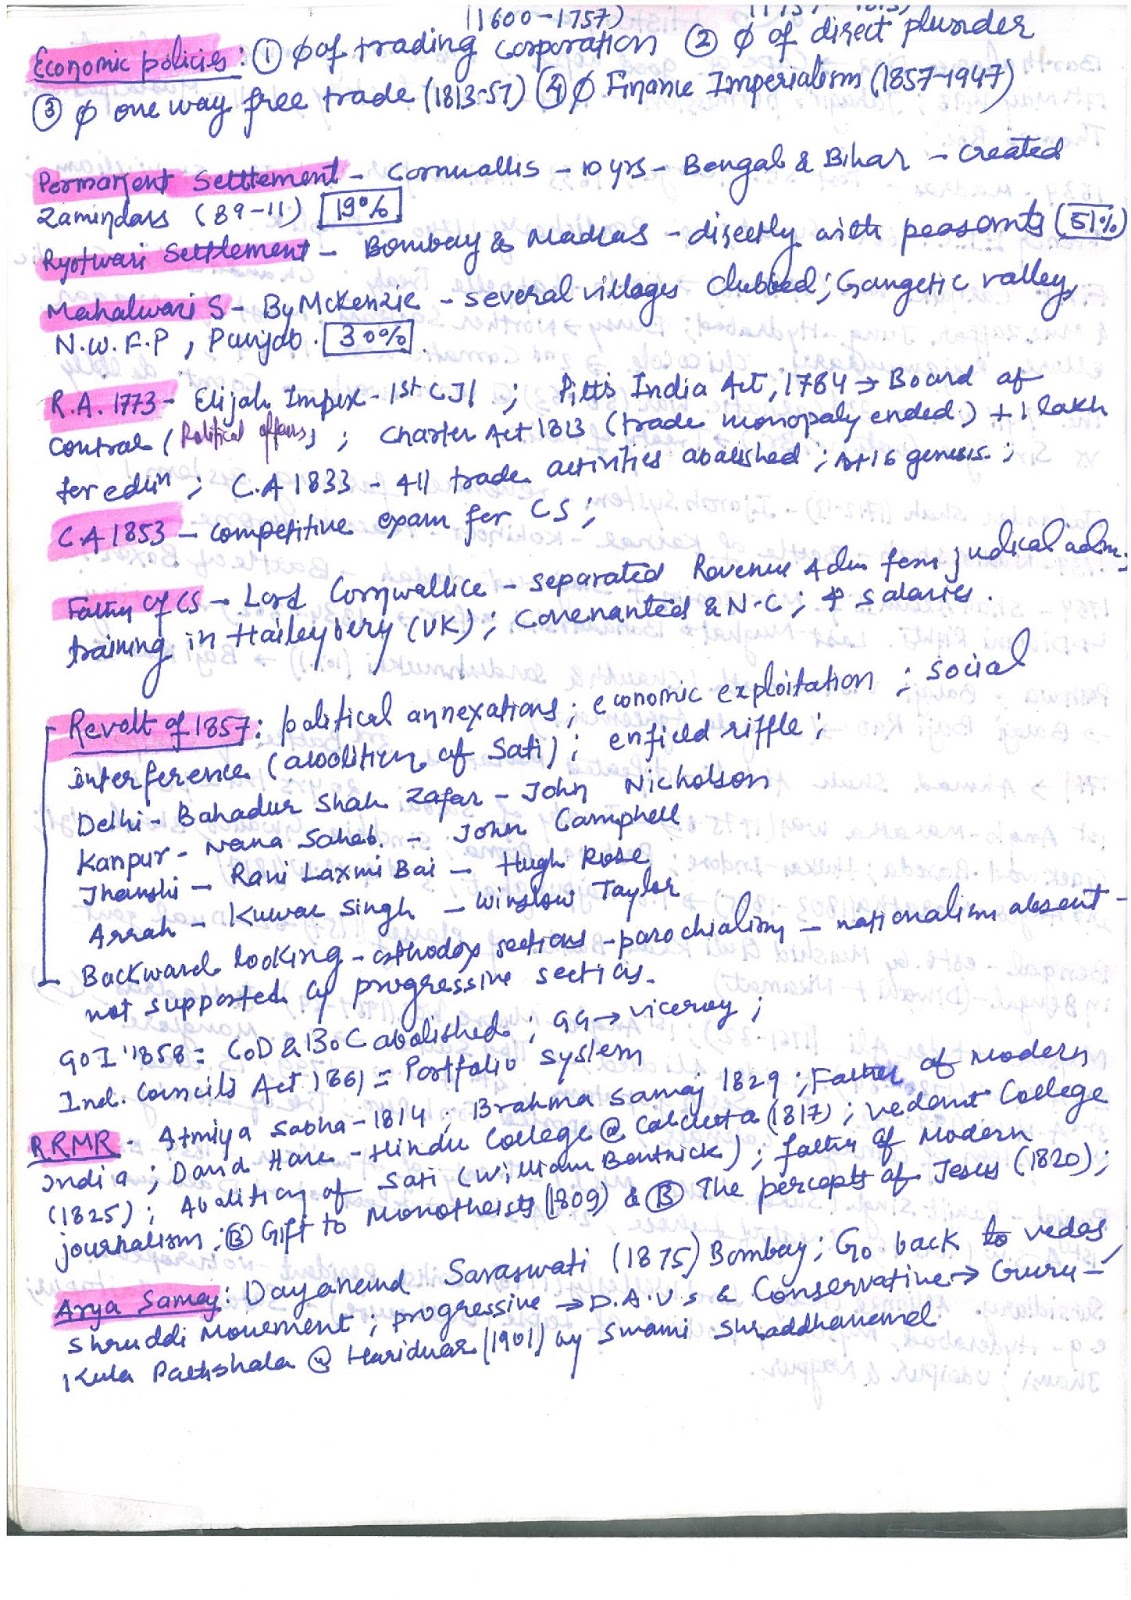 (1600-1757)
Economic policies: ① φ of trading corporation ② φ of direct plunder
③ φ one way free trade (1813-57) ④ φ Finance Imperialism (1857-1947)
Permanent Setttement - Cornwallis - 10 yrs - Bengal & Bihar - created
Zamindars (89-11.) 19%
Ryotwari Settlement - Bombay & Madras - directly with peasants 51%
Mahalwari S - By McKenzie - several villages clubbed; Gangetic valley,
N.W.F.P, Punjab. 30%
R.A. 1773 - Elijah Impex - 1st CJI ; Pitts India Act, 1784 → Board of
control (Political affairs) ; Charter Act 1813 (trade monopoly ended) + 1 lakh
for eduⁿ ; C.A 1833 - All trade activities abolished ; genesis. ;
C.A 1853 - competitive exam for CS ;
Father of CS - Lord Cornwallice - separated Revenue Adm from judical adm.
training in Haileybery (UK) ; Covenanted & N-C ; ↑ salaries.
Revolt of 1857 : political annexations ; economic exploitation ; social
interference (abolition of Sati) ; enfield riffle ;
Delhi - Bahadur Shah Zafar - John Nicholson
Kanpur - Nana Saheb. - John Campbell
Jhanshi - Rani Laxmi Bai - Hugh Rose
Arrah - Kuwar Singh - Winslow Taylor
Backward looking - orthodox sections - parochialism - nationalism absent -
not supported by progressive sections.
GOI "1858 = COD & BOC abolished ; GG → viceroy ;
Ind. Councils Act 1861 = Portfolio system
R.RMR - Atmiya Sabha - 1814 ; Brahma Samaj 1829 ; Father of modern
India ; David Hare - Hindu College @ Calcutta (1817) ; vedant College
(1825) ; Abolition of Sati (William Bentnick) ; father of Modern
journalism ; Ⓑ Gift to Monotheists (1809) & Ⓑ The percepts of Jesus (1820) ;
Arya Samaj : Dayanand Saraswati (1875) Bombay ; Go back to vedas,
Shruddi Movement ; progressive → D.A.V.s & Conservative → Guru-
Kula Pathshala @ Haridwar (1901) by Swami Shraddhanand